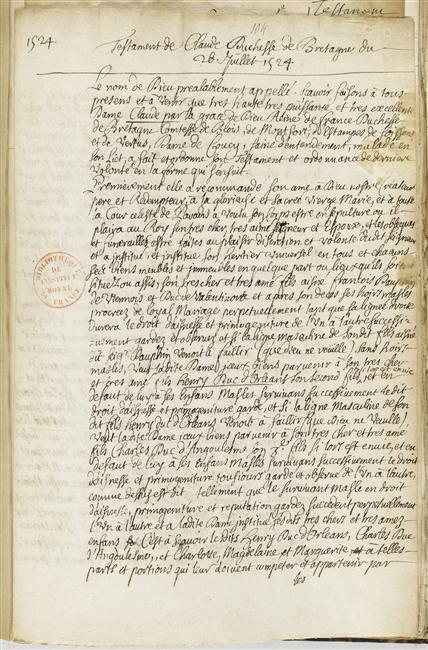 Testament
104
1524
Testament de Claude Duchesse de Bretagne du
26 Juillet 1524
Le nom de Dieu prealablement appellé. Scavoir faisons à tous
presens et a venir que tres haute tres puissante et tres excellente
Dame Claude par la grace de Dieu Reine de france Duchesse
de Bretagne Comtesse de Blois, de Montfort, d'Estampes de Soissons
et de Vertus, Dame de Coucy, saine d'entendement, malade en
son Lict, a fait et ordonné son Testament et ordonnance de derniere
Volonté en la forme qui s'ensuit.
Premierement elle a recommandé son ame à Dieu nostre createur
pere et Redempteur à la glorieuse et sacree Vierge Marie, et à toute
la Cour celeste de Paradis a voulu son corps estre en sepulture ou il
plaira au Roy son tres cher tres amé seigneur et Espoux, et les obseques
et funerailles estre faites au plaisir discretion et volonté dudit seigneur
et a institué et institue son heritier universel en tous et chacuns
ses biens meubles et immeubles en quelque part ou lieu qu'ils soient
situez ou assis, son tres cher et tres amé fils aisné francois Dauphin
de Viennois et Duc de Valentinois et apres son deces ses hoirs masles
procreez de loyal Mariage perpetuellement tant que la lignée
durera le droit d'aisnesse et primogeniture de l'Un à l'autre successi-
vement gardez et observez et si la ligne masculine de sondit fils aisné
Dauphin venoit à faillir (que dieu ne veuille) sans hoirs
masles, veut ladite Dame, iceux biens parvenir à son tres cher
et tres amé fils Henry Duc d'Orleans son second fils, et en
si lors est en vie
defaut de luy à ses enfans Masles survivans successivement ledit
droit d'aisnesse et primogeniture gardé, et si la ligne Masculine de son
dit fils Henry Duc d'Orleans venoit à faillir (que dieu ne Veuille)
Veut ladite Dame iceux biens parvenir à son tres cher et tres amé
fils Charles Duc d'Angoulesme son 3.e fils si lors est en vie, et en
defaut de luy à ses enfans Masles survivans successivement le droit
d'aisnesse et primogeniture tousjours gardé et observé de l'Un à l'autre,
comme dessus est dit, tellement que le survivant masle en droit
d'aisnesse, primogeniture et reputation gardez succedent perpetuellement
l'Un à l'autre et a ladite Dame institué ses dits tres chers et tres amez
enfans C'est à scavoir lesdits Henry Duc d'Orleans, Charles Duc
d'Angoulesme, et Charlotte, Magdelaine et Marguerite et a telles
parts et portions qui leur doivent competer et appartenir par
les
BIBLIOTHEQUE
DE
L'INSTITUT
DE FRANCE